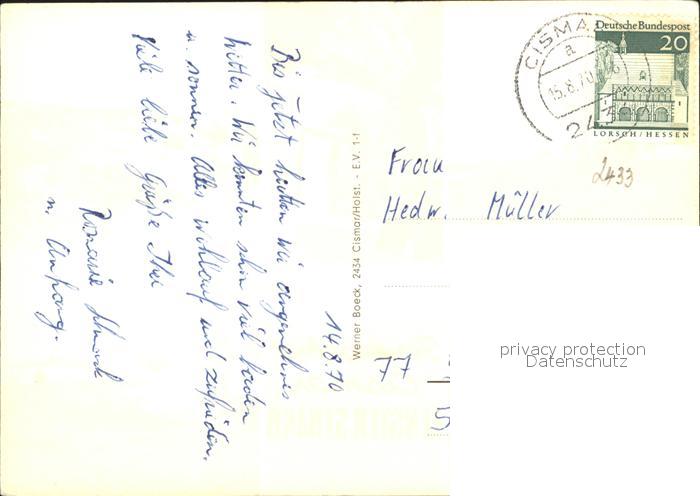 14.8.70
Bis jetzt hatten wir angenehmes
Wetter. Wir konnten schon viel baden
u. sonnen. Alles wohlauf und zufrieden.
Viele liebe Grüße Ihre
m. Anhang.
Werner Boeck, 2434 Cismar/Holst. - E.V. 1-1
CISMA
a
15.8.70
243
Deutsche Bundespost
20
LORSCH/HESSEN
2433
Frau
Hedw. Müller
77
5
privacy protection
Datenschutz